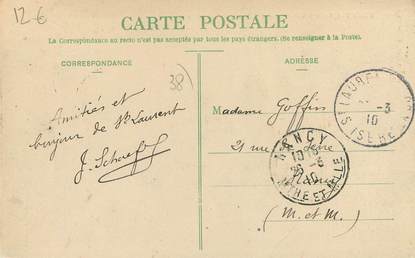 12€
CARTE POSTALE
La Correspondance au recto n'est pas acceptée par tous les pays étrangers. (Se renseigner à la Poste).
CORRESPONDANCE
ADRESSE
38
Amitiés et
bonjour de St Laurent
J.
Madame Goffin
21 rue
(M. et M.)
NANCY
10
MTHE ET MLLE
ST LAURENT
-3
10
ISERE